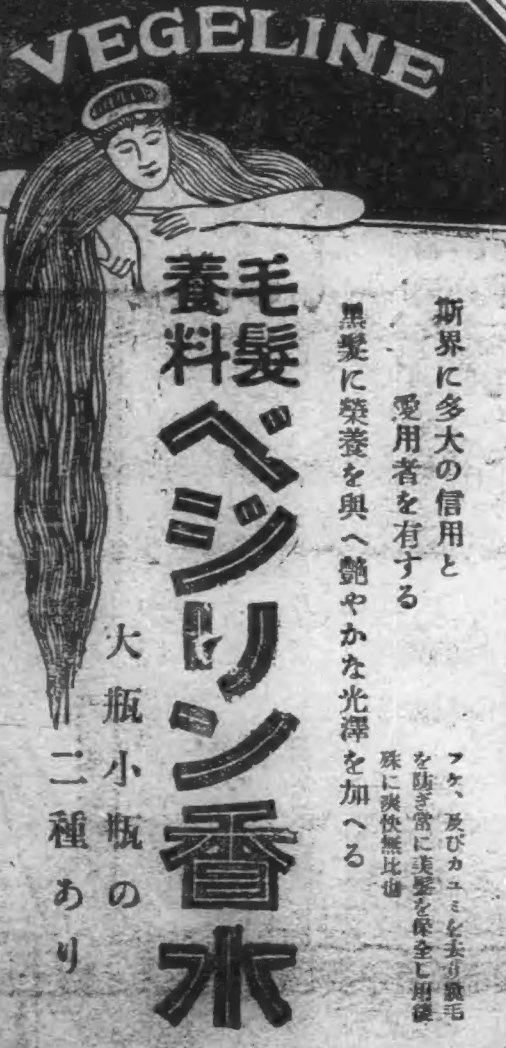 VEGELINE
斯界に多大の信用と
愛用者を有する
黒髪に榮養を與へ艶やかな光澤を加へる
フケ、及びカユミを去り脱毛
を防ぎ常に美髪を保全し用後
殊に爽快無比也
毛髮
養料
ベジリン香水
大瓶小瓶の
二種あり